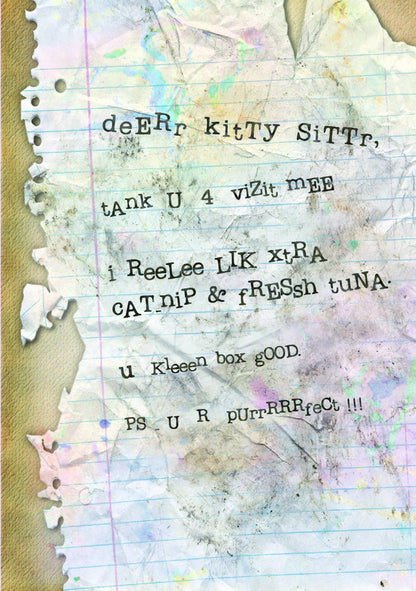 deERr kitTy SiTTr,
tAnk U 4 viZit mEE
i ReeLee LIK xtRA
cAT-niP & fRESsh tuNA.
u Kleeen box gOOD.
PS - U R pUrrRRRfeCt !!!